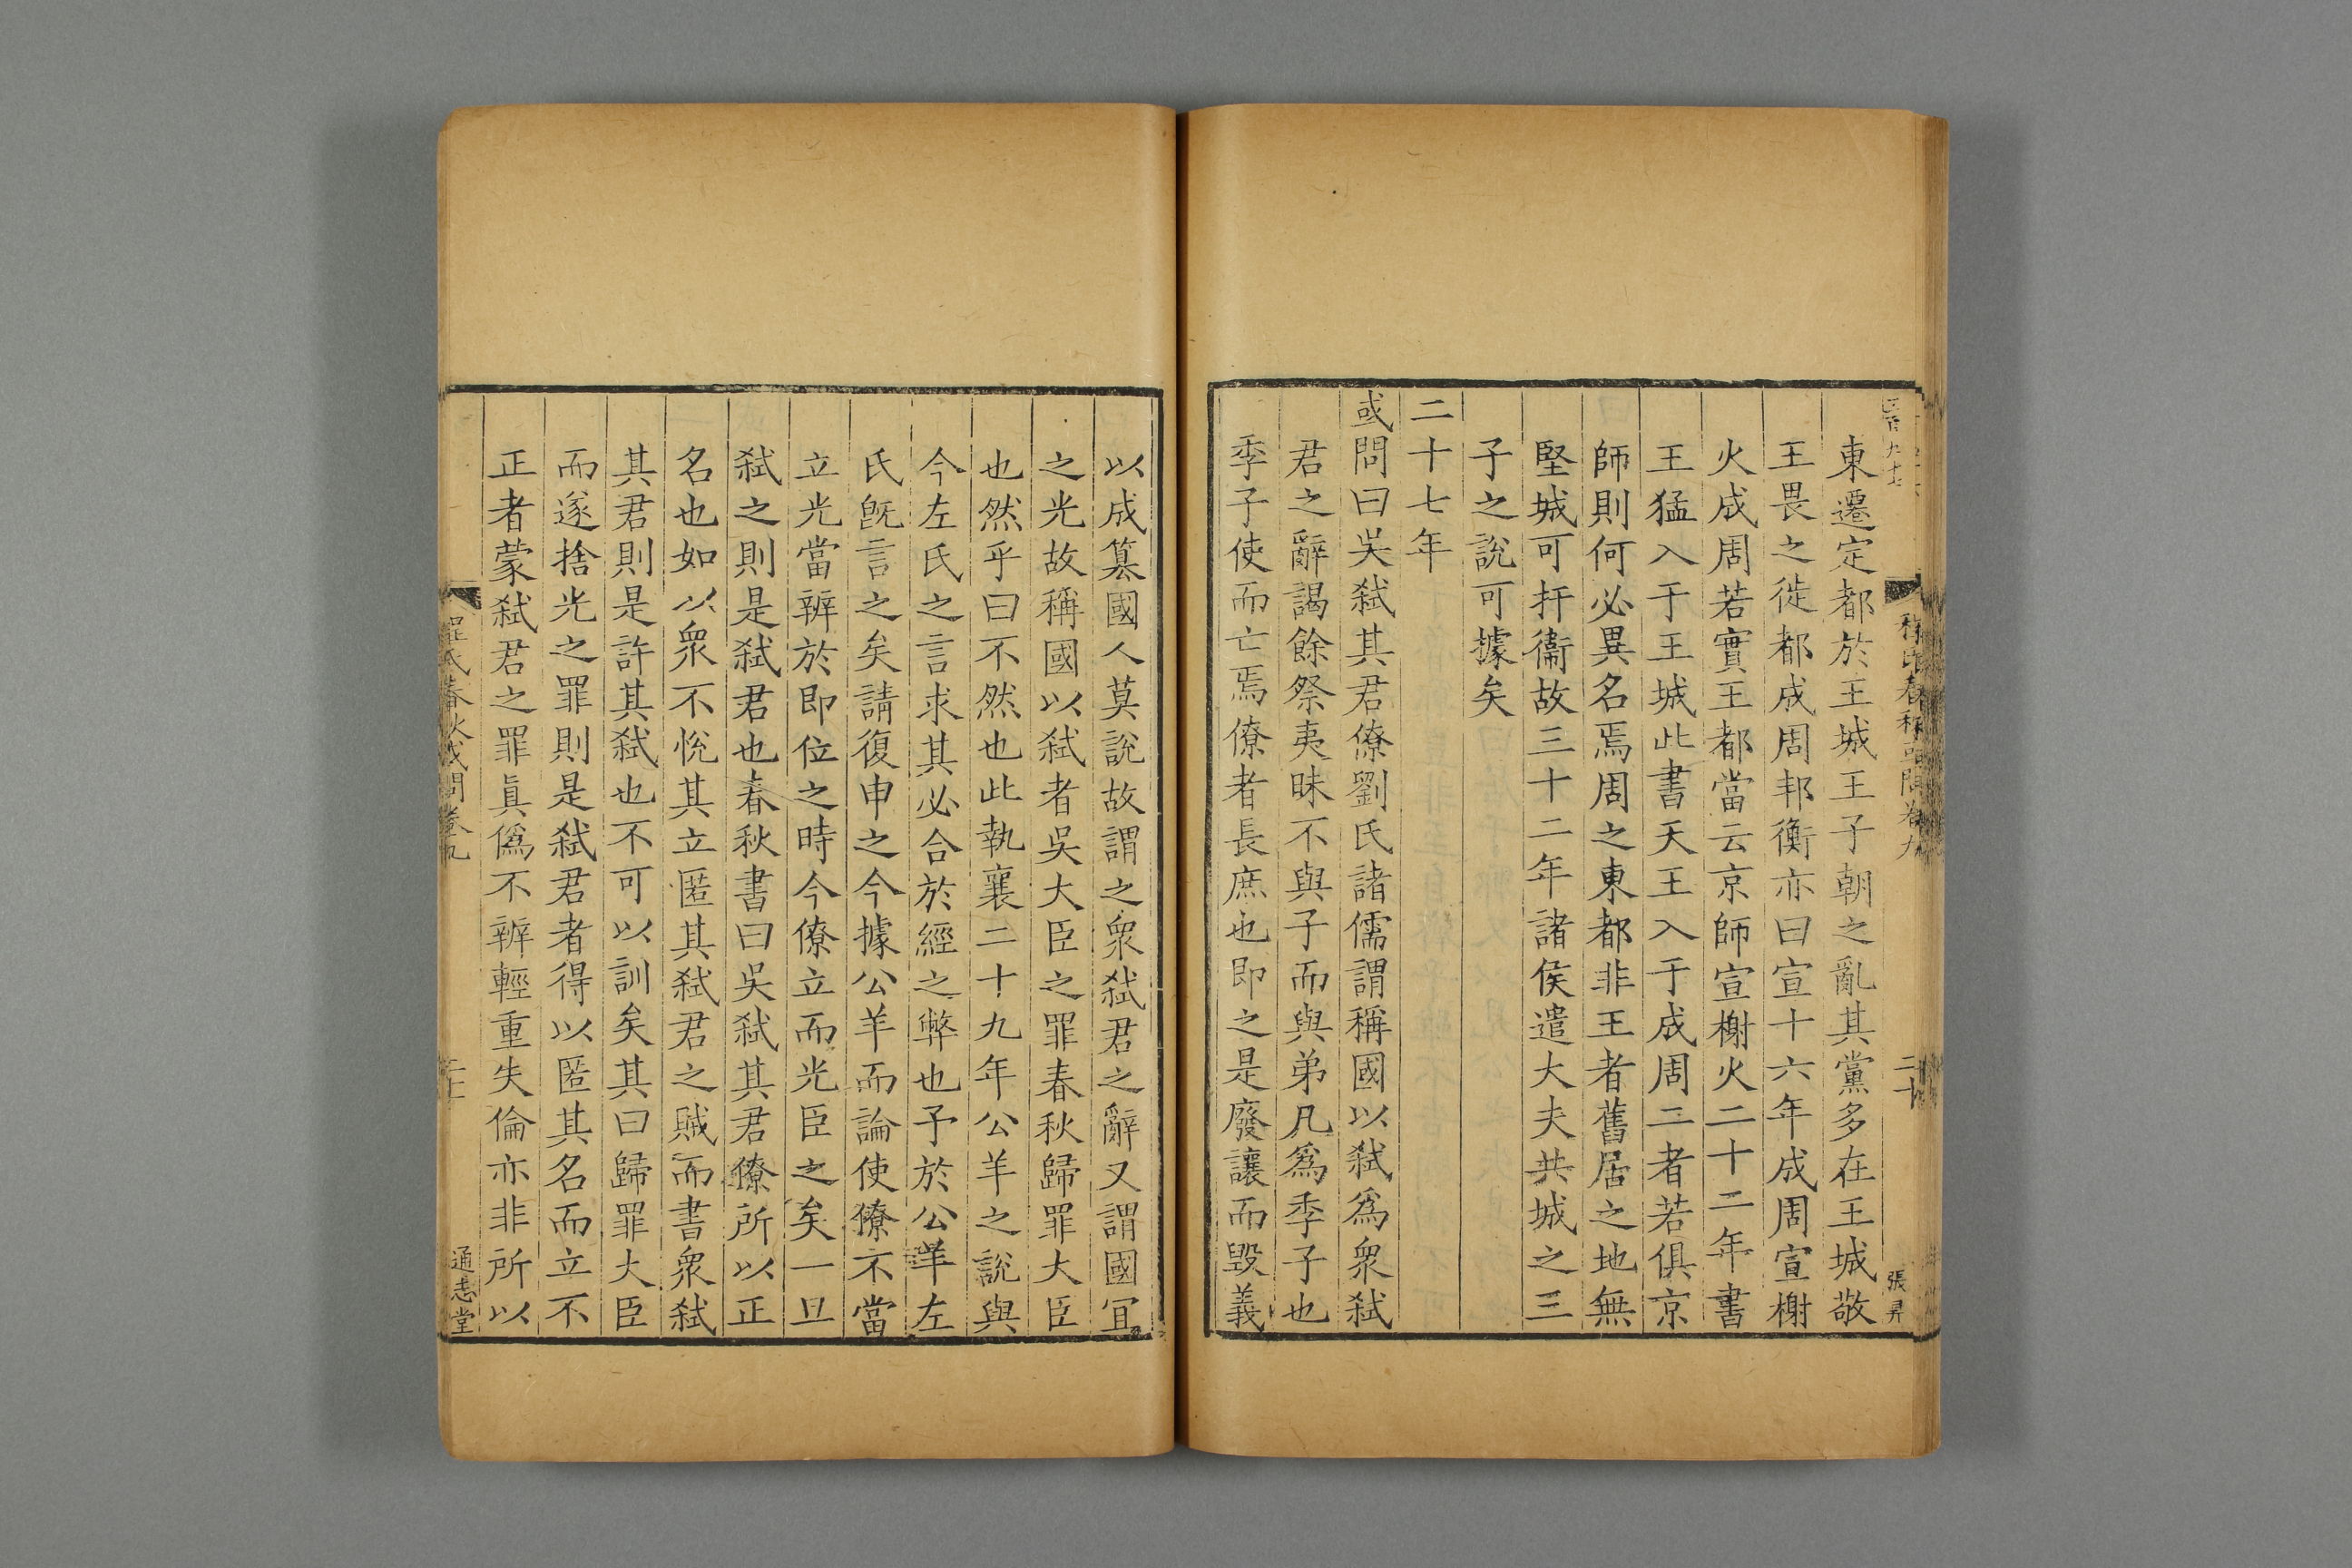 東遷定都於王城王子朝之亂其黨多在王城敬
王畏之徙都成周邦衡亦曰宣十六年成周宣榭
火成周若實王都當云京師宣榭火二十二年書
王猛入于王城此書天王入于成周二者若俱京
師則何必異名焉周之東都非王者舊居之地無
堅城可扞衞故三十二年諸侯遣大夫共城之三
子之說可據矣
二十七年
或問曰吳弑其君僚劉氏諸儒謂稱國以弑爲衆弑
君之辭謁餘祭夷昧不與子而與弟凡爲季子也
季子使而亡焉僚者長庶也即之是廢讓而毀義
二十
張昇
以成篡國人莫說故謂之衆弑君之辭又謂國宜
之光故稱國以弑者吳大臣之罪春秋歸罪大臣
也然乎曰不然也此執襄二十九年公羊之說與
今左氏之言求其必合於經之弊也予於公羊左
氏旣言之矣請復申之今據公羊而論使僚不當
立光當辨於即位之時今僚立而光臣之矣一旦
弑之則是弑君也春秋書曰吳弑其君僚所以正
名也如以衆不悅其立匿其弑君之賊而書衆弑
其君則是許其弑也不可以訓矣其曰歸罪大臣
而遂捨光之罪則是弑君者得以匿其名而立不
正者蒙弑君之罪眞僞不辨輕重失倫亦非所以
通志堂